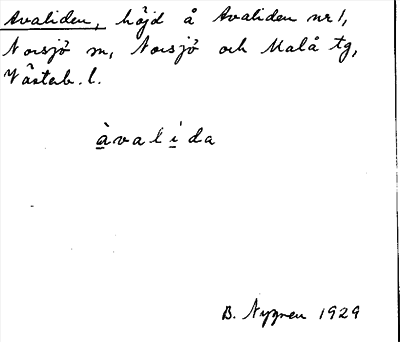 Avaliden, höjd å Avaliden nr 1,
Norsjö sn, Norsjö och Malå tg,
Västerb. l.
àvalída
B. Nygren 1929